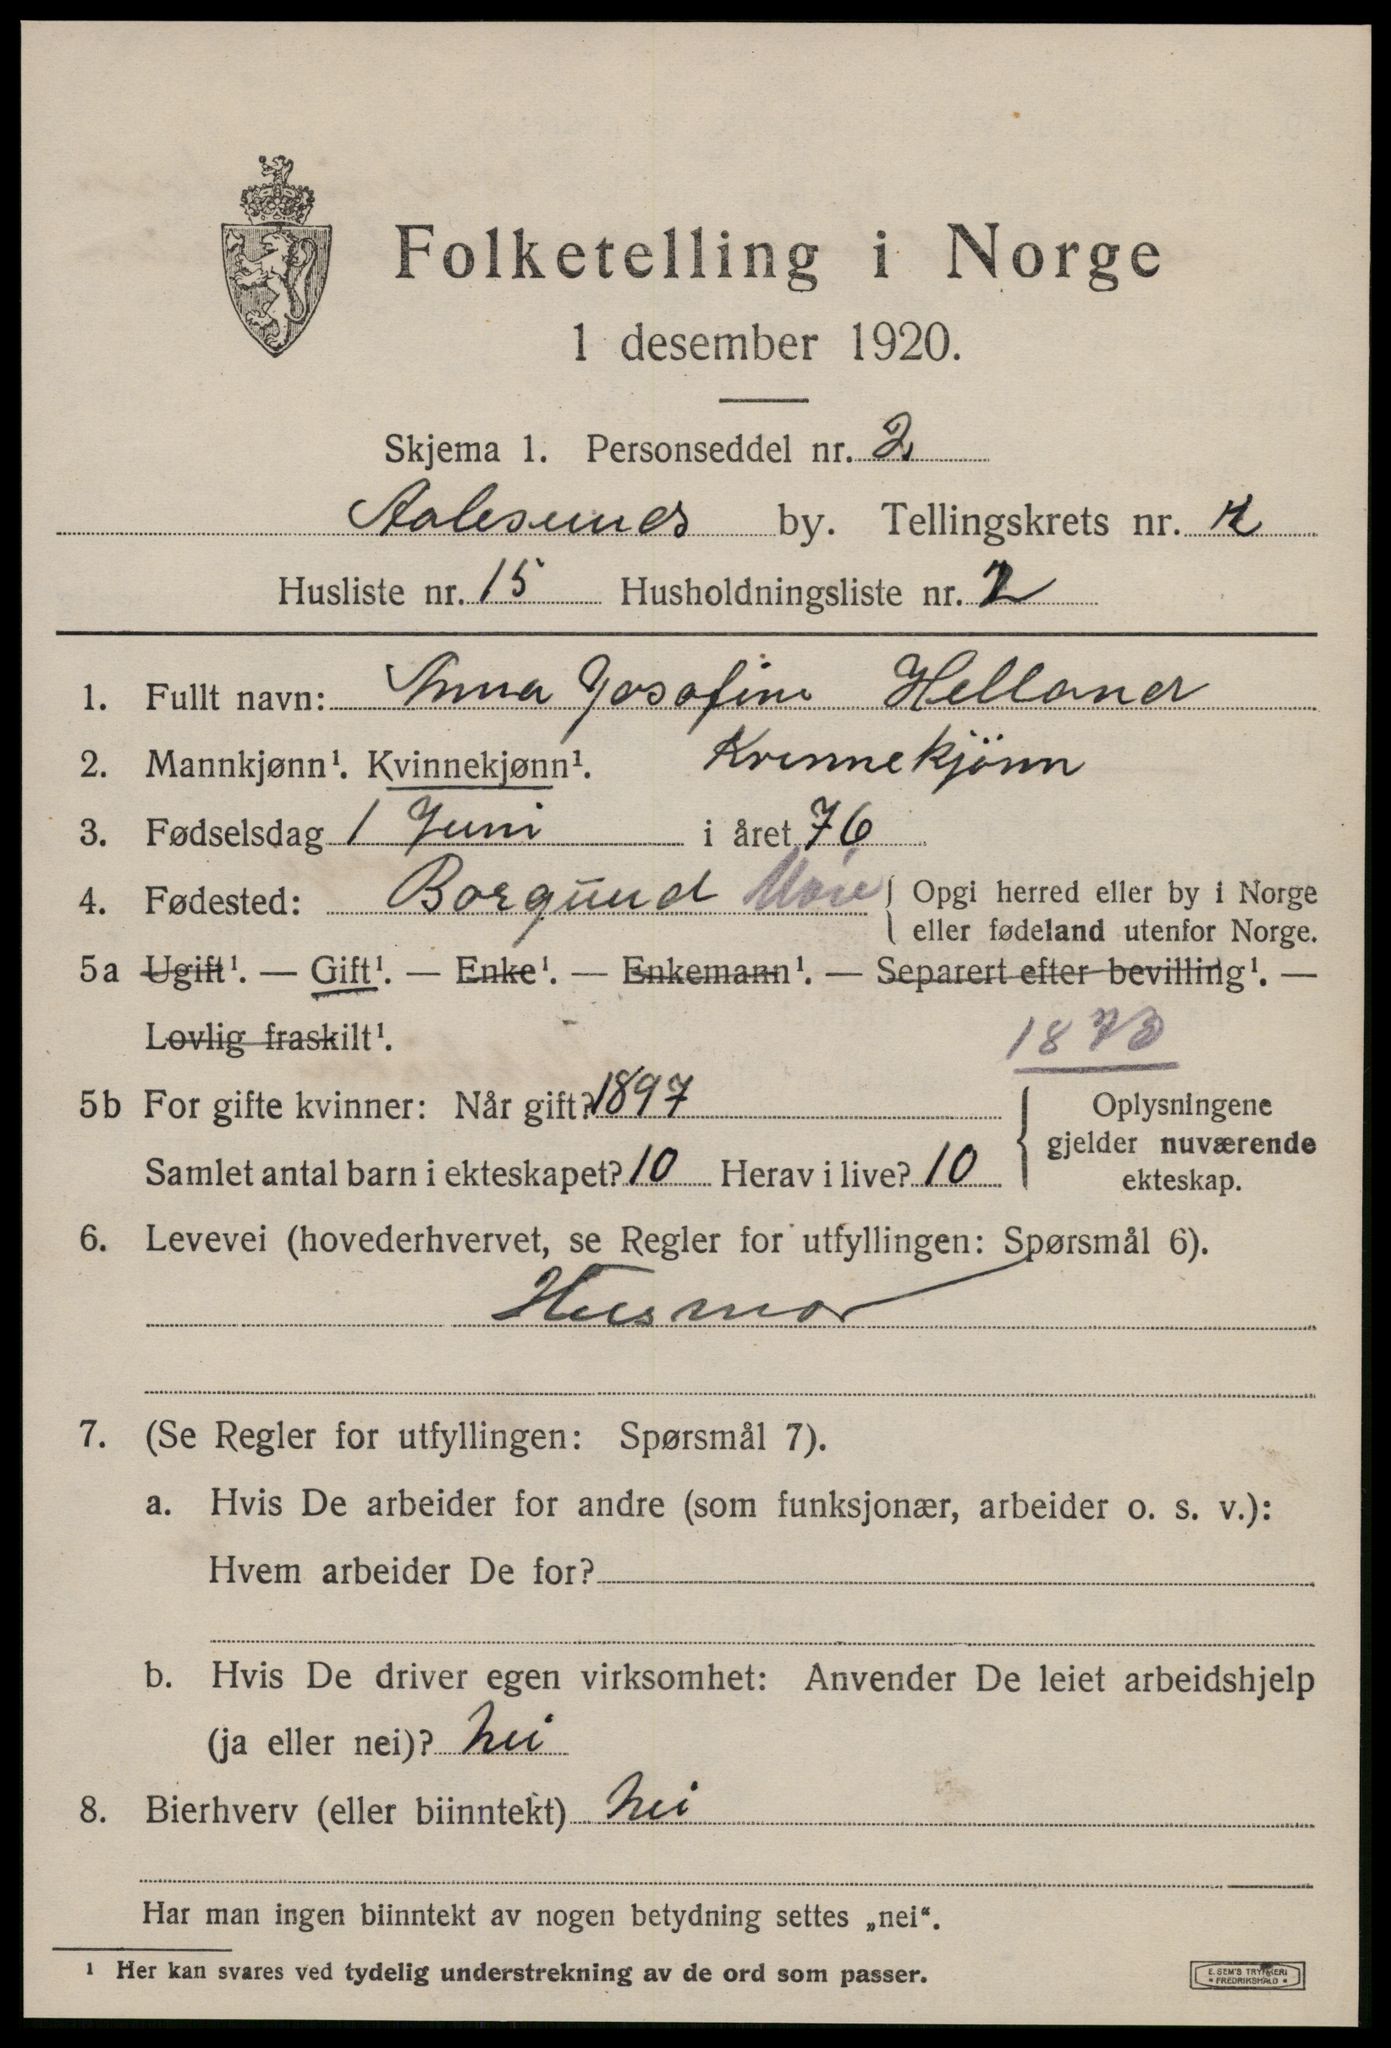 Folketelling i Norge
1 desember 1920.
Skjema 1. Personseddel nr. 2
Aalesunds by. Tellingskrets nr.
Husliste nr. 15 Husholdningsliste nr. 2
1. Fullt navn: Anna Josefine Helland
2. Mannkjønn¹. Kvinnekjønn¹. Kvinnekjönn
3. Fødselsdag 1 Juni i året 76
4. Fødested: Borgund Møre { Opgi herred eller by i Norge
eller fødeland utenfor Norge.
5a Ugift¹. — Gift¹. — Enke¹. — Enkemann¹. — Separert efter bevilling¹. —
Lovlig fraskilt¹.
5b For gifte kvinner: Når gift? 1897 { Oplysningene
gjelder nuværende
ekteskap.
Samlet antal barn i ekteskapet? 10 Herav i live? 10
6. Levevei (hovederhvervet, se Regler for utfyllingen: Spørsmål 6).
Husmor
7. (Se Regler for utfyllingen: Spørsmål 7).
a. Hvis De arbeider for andre (som funksjonær, arbeider o. s. v.):
Hvem arbeider De for?
b. Hvis De driver egen virksomhet: Anvender De leiet arbeidshjelp
(ja eller nei)? Nei
8. Bierhverv (eller biinntekt) Nei
Har man ingen biinntekt av nogen betydning settes „nei“.
¹ Her kan svares ved tydelig understrekning av de ord som passer.
E. SEM'S TRYKKERI
FREDRIKSHALD